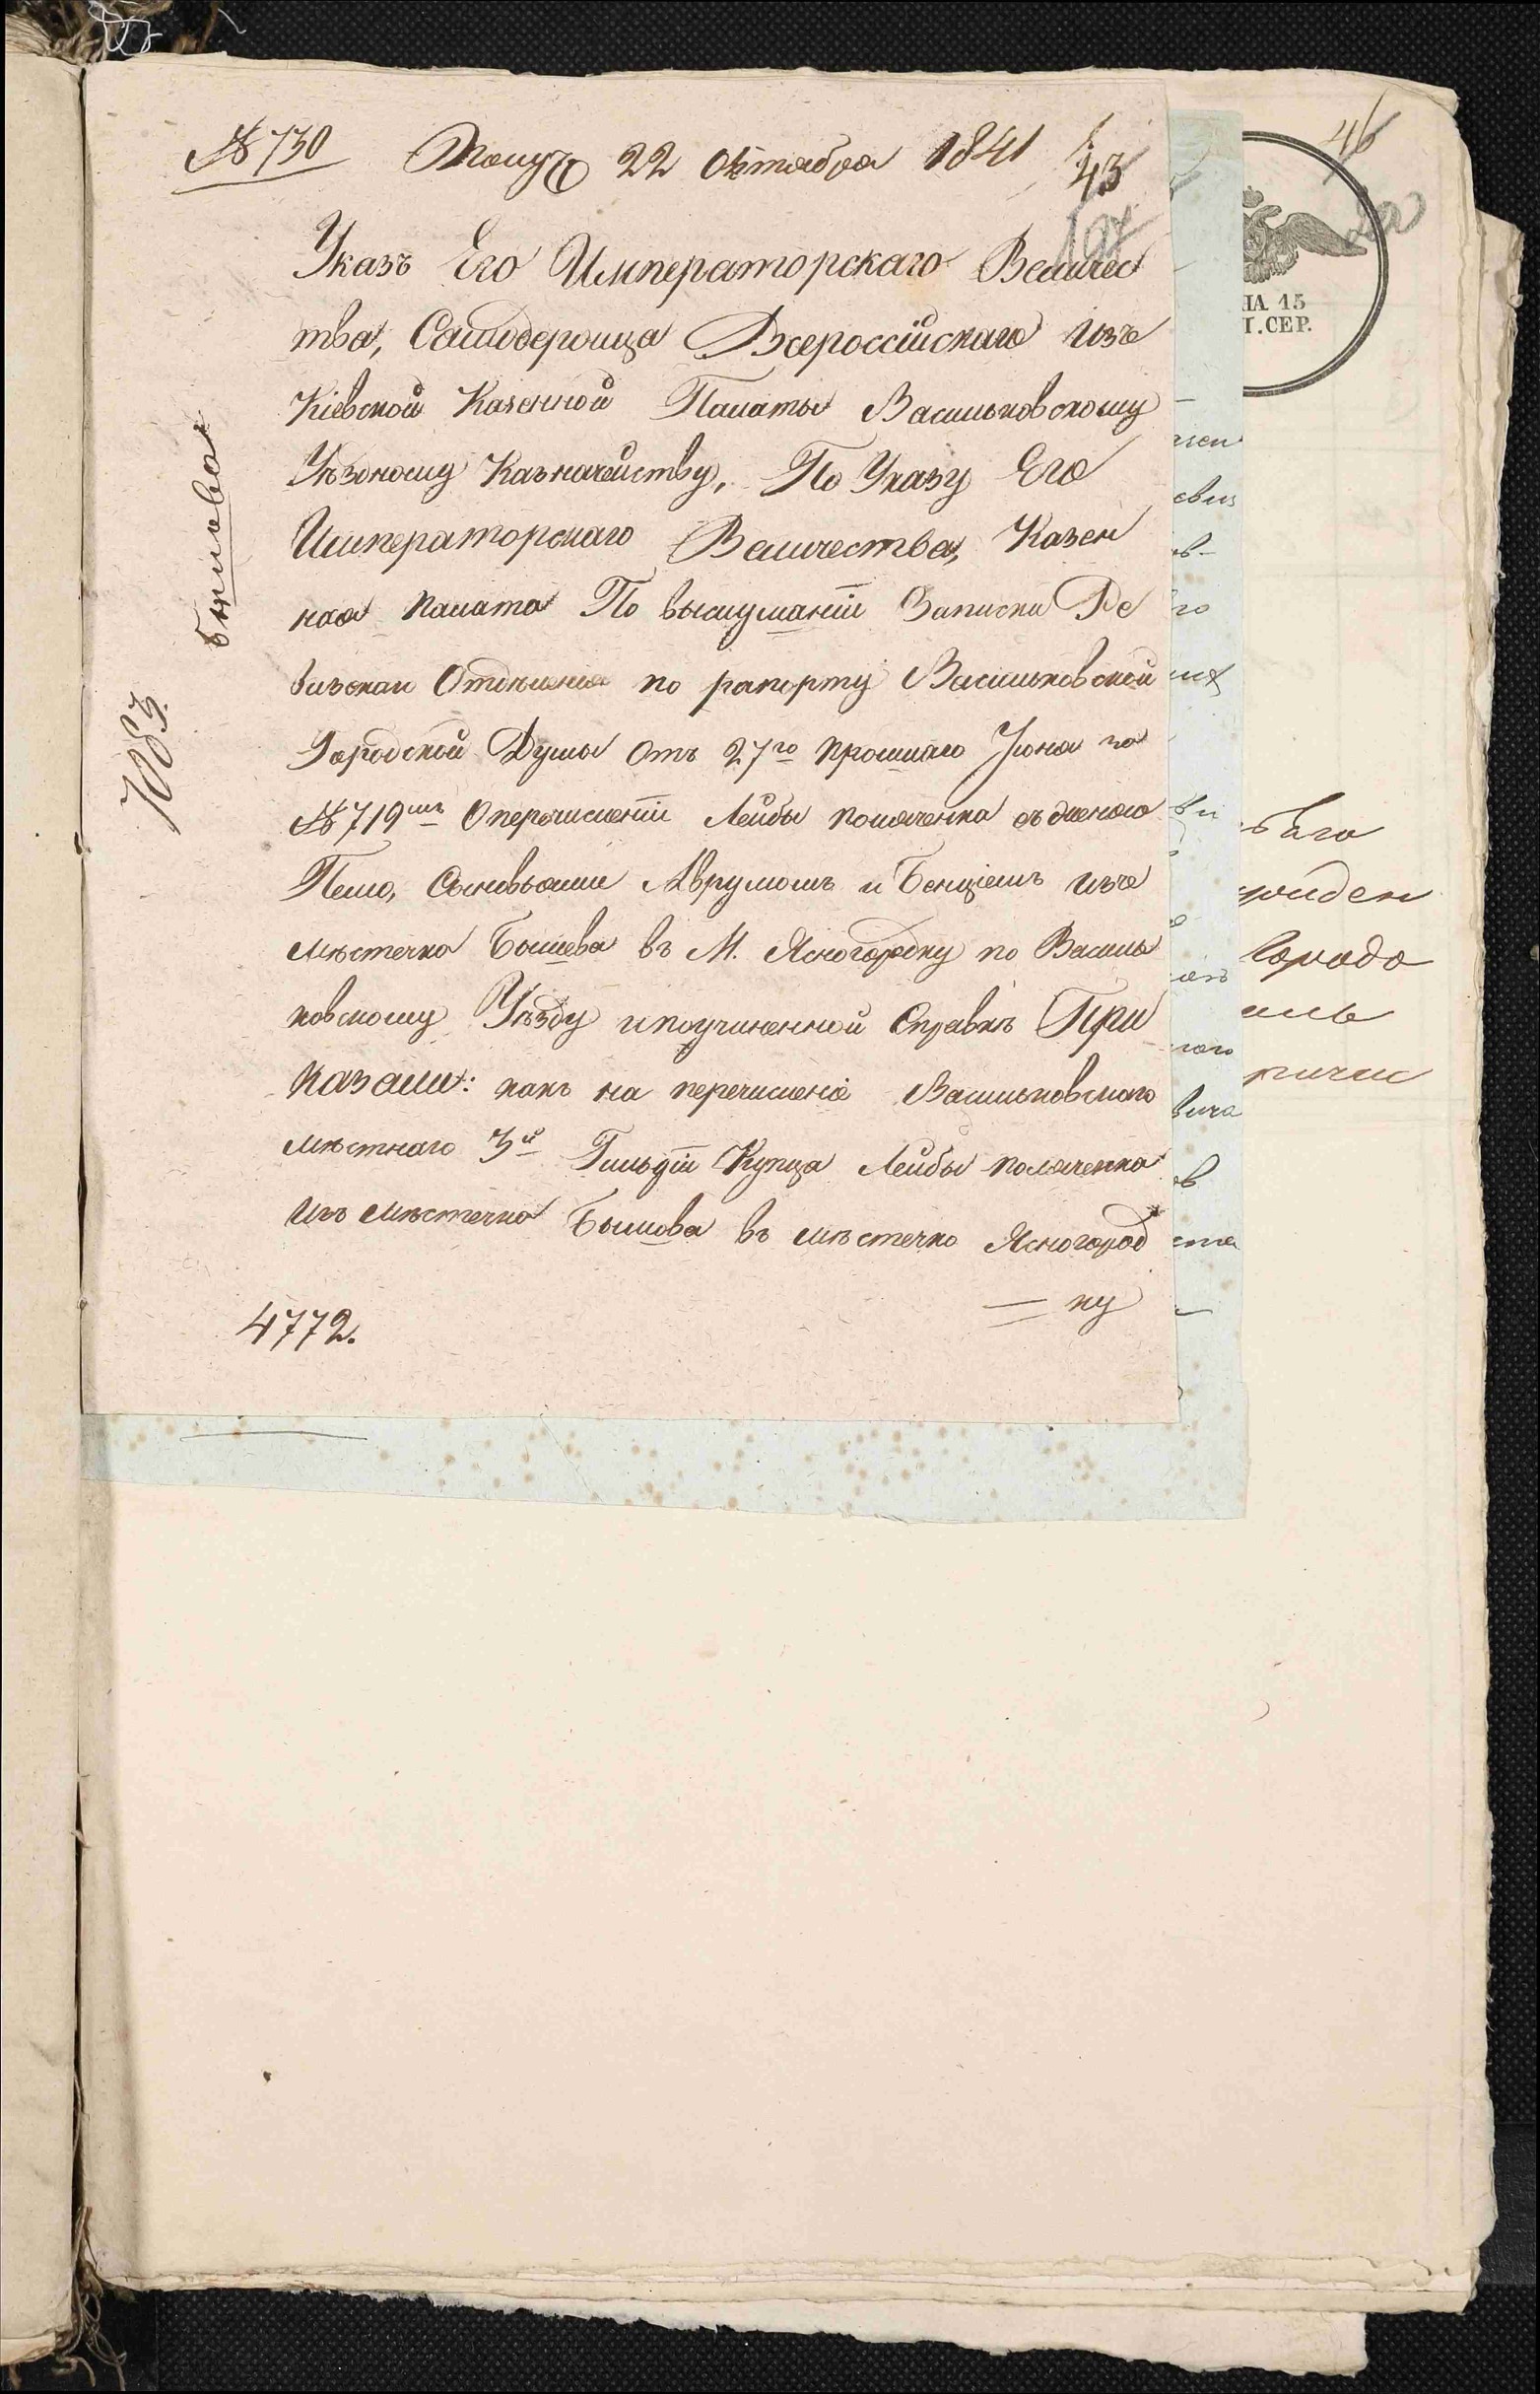 № 730 Получ 22 Октября 1841 43
Указъ Его Императорскаго Величес
тва, Самодержца Всероссійскаго изъ
Кіевской Казенной Палаты Васильковскому
Уѣздному Казначейству, По Указу Его
Императорскаго Величества, Казен
ная палата По выслушаніи Записки Ре
визскаи Отдѣленія по рапорту Васильковской
Городской Думы отъ 27го прошлаго Іюня за
№ 719мъ О перечисленіи Лейбы поляченка съ женою
Песю, Сыновьями Аврумомъ и Бенціемъ изъ
мѣстечка Бышева въ М. Ясногородку по Василь
ковскому Уѣзду и поучиненной Справкѣ При
казали: какъ на перечисленіе Васильковскаго
мѣстнаго 3й Гильдіи Купца Лейбы поляченка
изъ мѣстечка Бышова въ мѣстечко Ясногород
ку
4772.
7083
46
НА 15
СЕР.